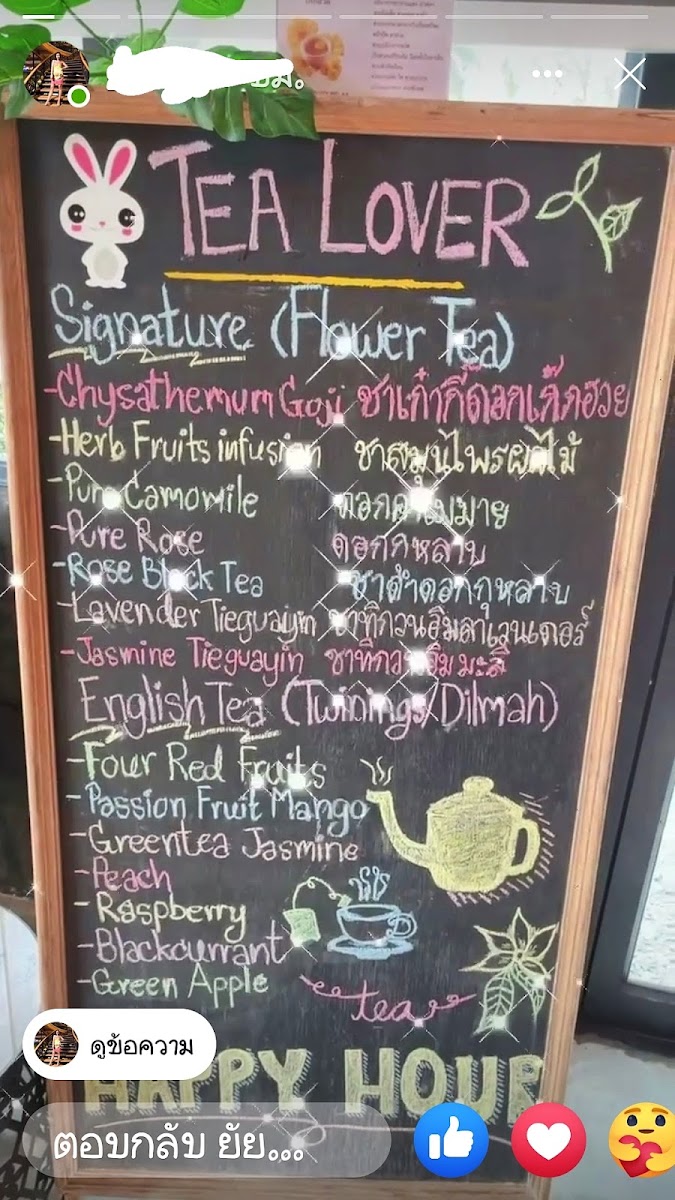 TEA LOVER
Signature (Flower Tea)
-Chysathemum Goji ชาเก๋ากี้ดอกเก๊กฮวย
-Herb Fruits infusion ชาสมุนไพรผลไม้
-Pure Camomile ดอกคาโมมาย
-Pure Rose ดอกกุหลาบ
-Rose Black Tea ชาดำดอกกุหลาบ
-Lavender Tieguaiyin ชาทิกวนอิมลาเวนเดอร์
-Jasmine Tieguayin ชาทิกวนอิมมะลิ
English Tea (Twinings/Dilmah)
-Four Red Fruits
-Passion Fruit Mango
-Greentea Jasmine
-Peach
-Raspberry
-Blackcurrant
-Green Apple
tea
ดูข้อความ
HAPPY HOUR
ตอบกลับ ยัย...